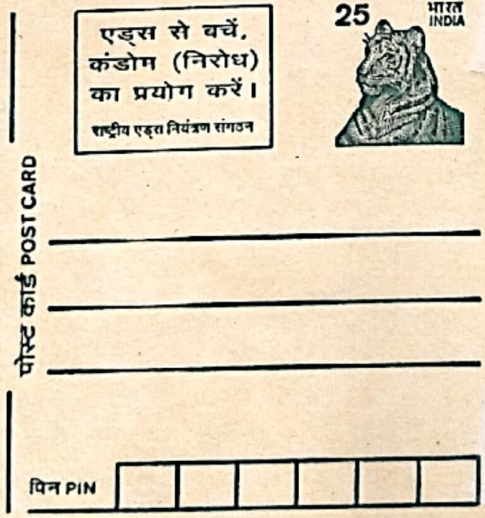 एड्स से बचें,
कंडोम (निरोध)
का प्रयोग करें।
राष्ट्रीय एड्स नियंत्रण संगठन
25
भारत
INDIA
पोस्ट कार्ड POST CARD
पिन PIN